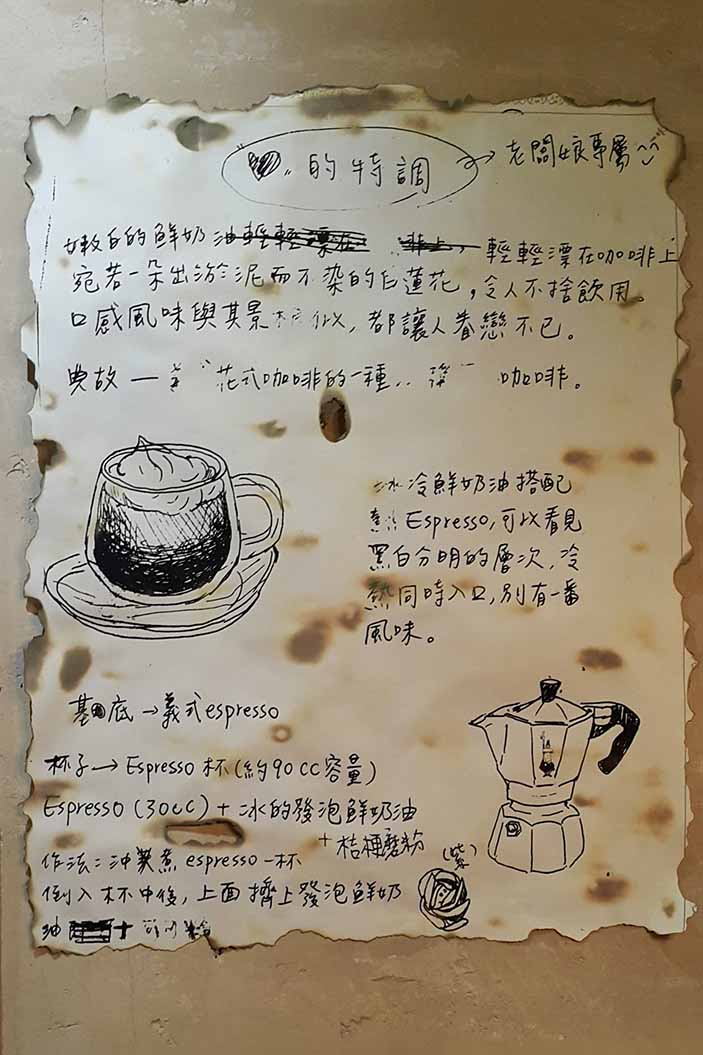 的特調 → 老闆娘專屬^^
嫩白的鮮奶油輕輕漂在 非上，輕輕漂在咖啡上
宛若一朵出淤於泥而不染的白蓮花，令人不捨飲用。
口感風味與其景 似，都讓人眷戀不已。
典故 — 花式咖啡的一種 咖啡。
冰冷鮮奶油搭配
Espresso，可以看見
黑白分明的層次，冷
熱同時入口，別有一番
風味。
基底→義式espresso
杯子→Espresso杯(約90cc容量)
Espresso (30cc) + 冰的發泡鮮奶油
+ 桔梗磨粉
(紫)
作法：沖煮 espresso 一杯
倒入杯中後，上面擠上發泡鮮奶
油